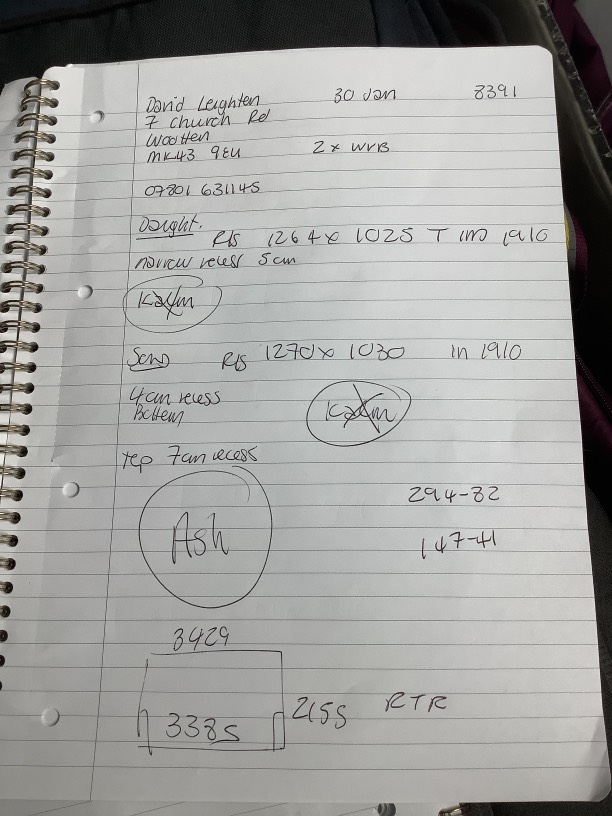 David Leighten 30 Jan 8391
7 Church Rd
Wootten
MK43 9EU 2 x WVB
07801 631145
Daught.
R/S 1264 x 1025 T in 1910
narrow recess 5cm
Son R/S 1270 x 1030 in 1910
4cm recess
Bottem
top 7cm recess
294-82
Ash
147-41
3429
3385 2155 RTR